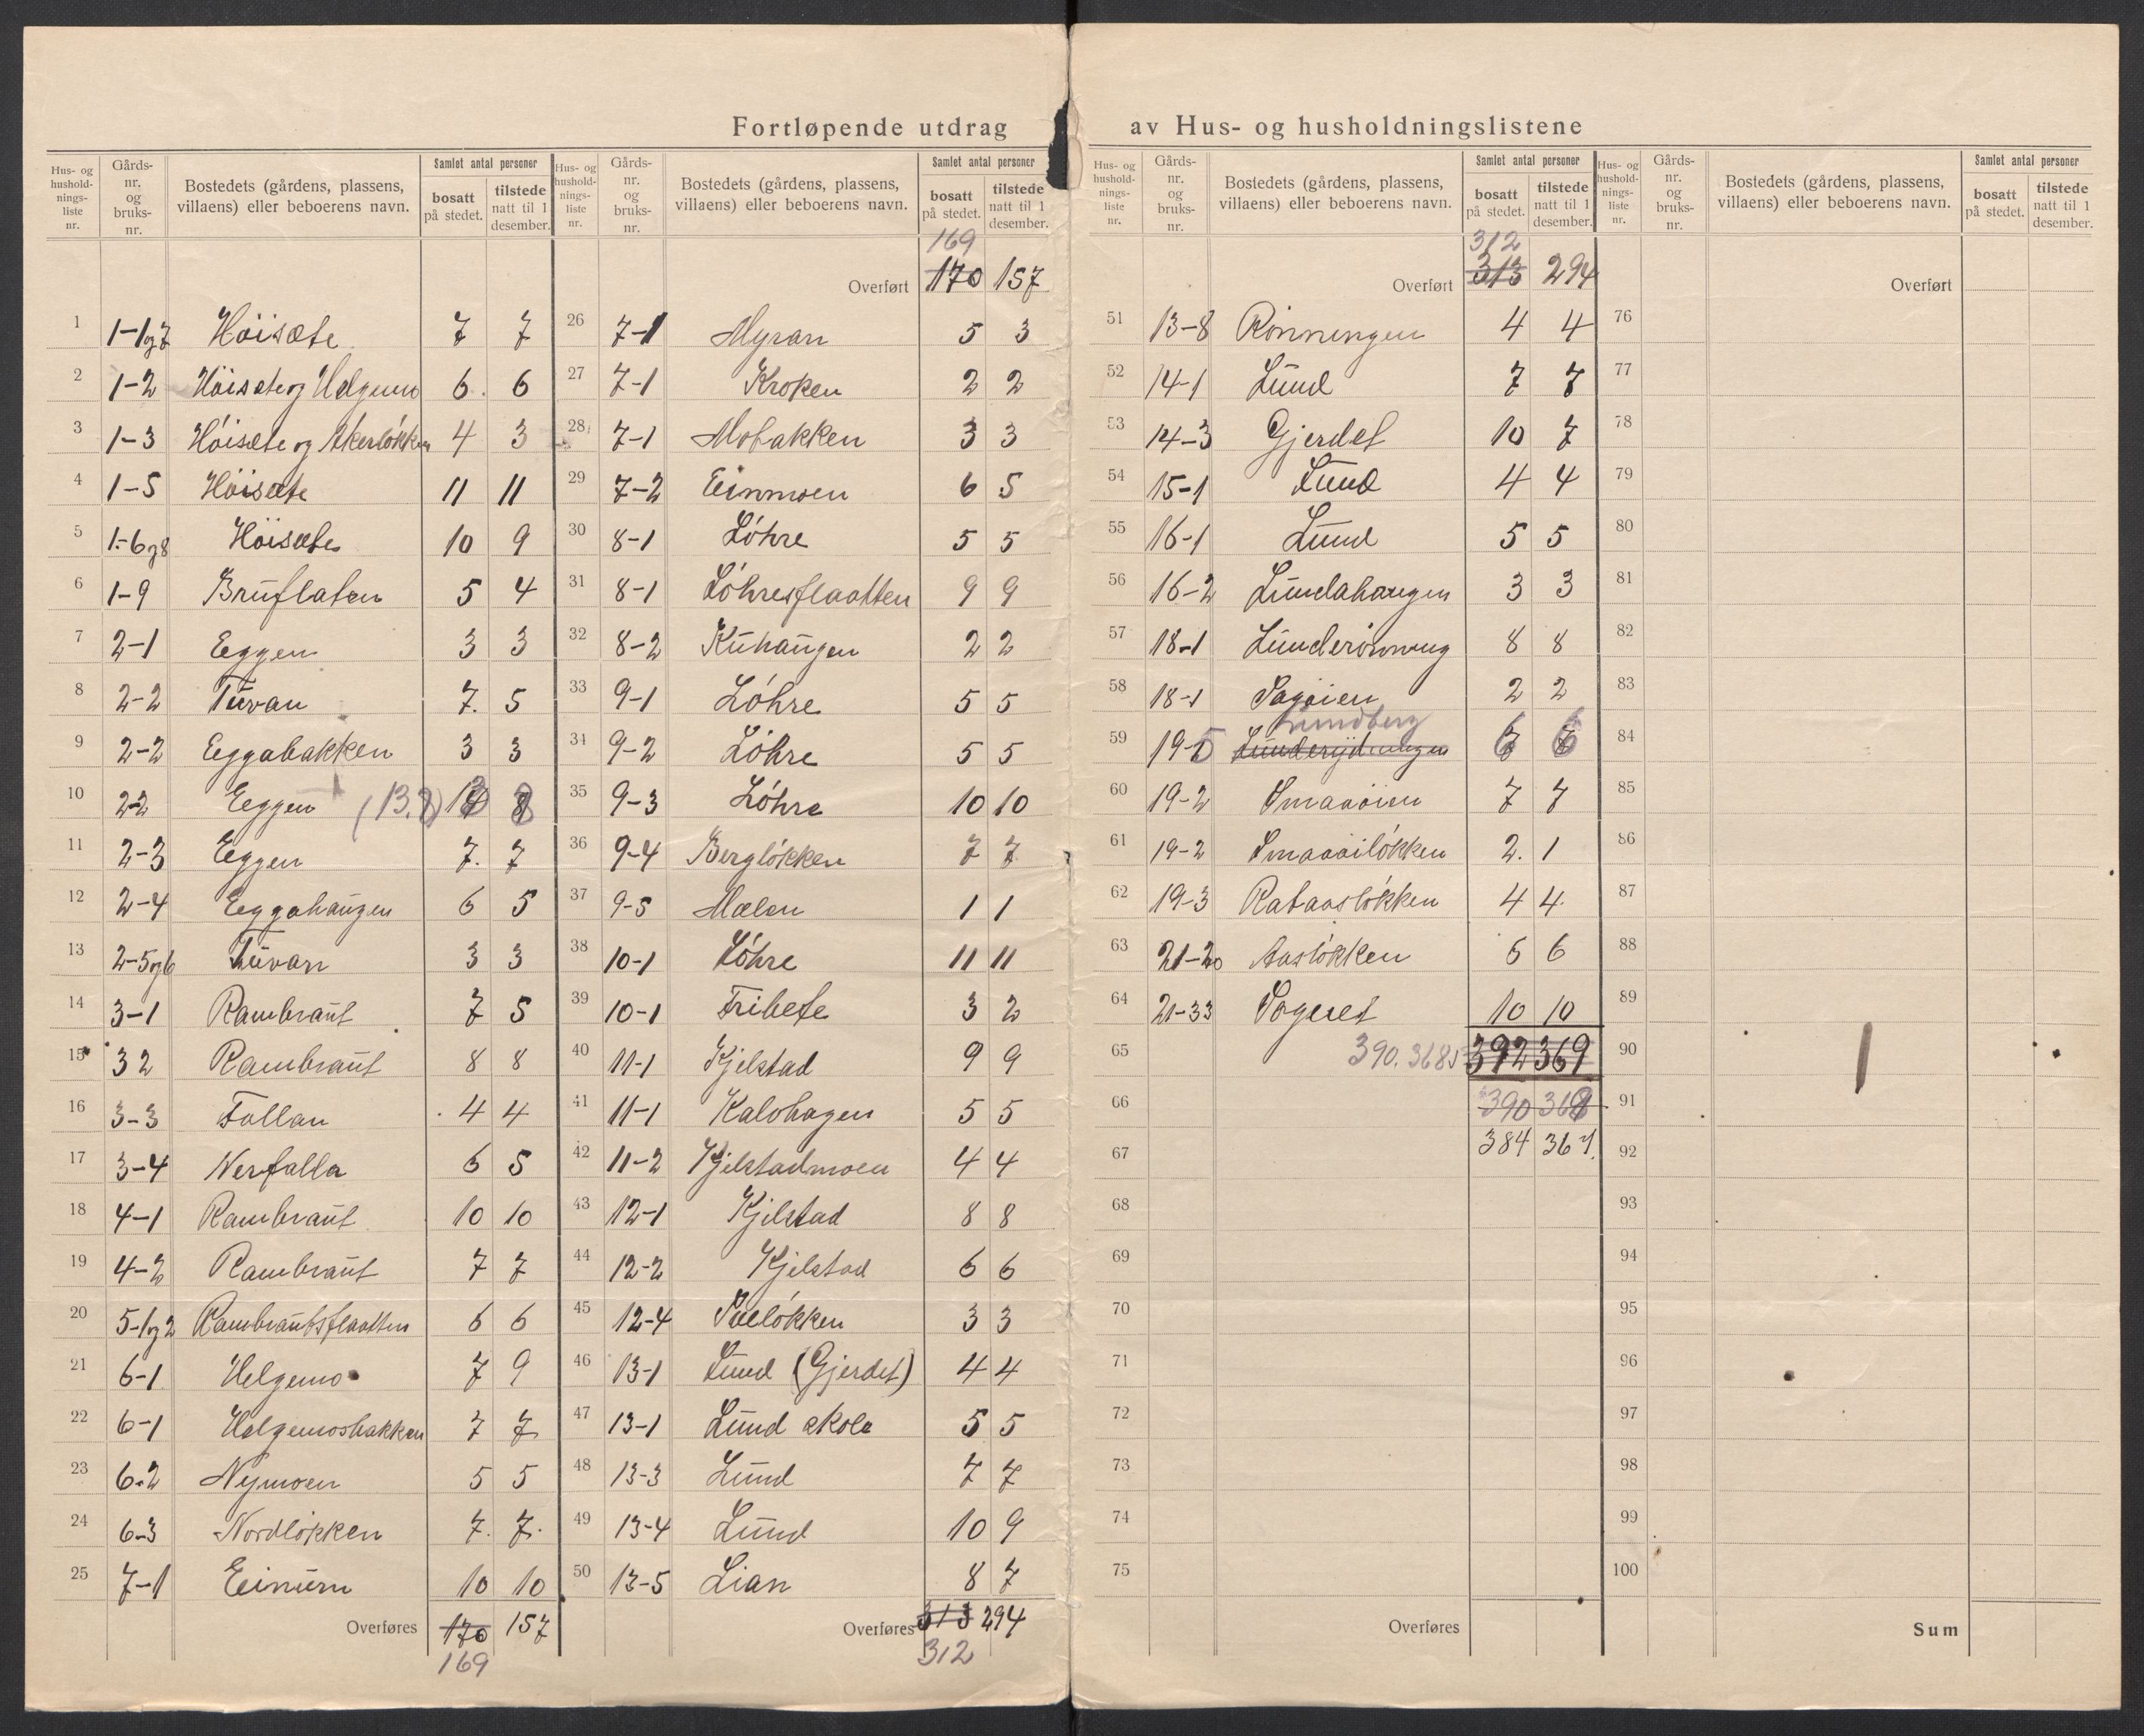 Fortløpende utdrag av Hus- og husholdningslistene
Hus- og husholdnings-liste nr. | Gårds-nr. og bruks-nr. | Bostedets (gårdens, plassens, villaens) eller beboerens navn. | Samlet antal personer bosatt på stedet. | tilstede natt til 1 desember.
1 1-1og7 Höisæte 7 7
2 1-2 Höisæte og Helgemo 6 6
3 1-3 Höisæte og Akerløkken 4 3
4 1-5 Höisæte 11 11
5 1-6og8 Höisæte 10 9
6 1-9 Bruflaten 5 4
7 2-1 Eggen 3 3
8 2-2 Tuvan 7 5
9 2-2 Eggabakken 3 3
10 2-2 Eggen (13.8) 13 8
11 2-3 Eggen 7 7
12 2-4 Eggahaugen 6 5
13 2-5og6 Tuvan 3 3
14 3-1 Rambraut 7 5
15 3 2 Rambraut 8 8
16 3-3 Fallan 4 4
17 3-4 Nerfalla 6 5
18 4-1 Rambraut 10 10
19 4-2 Rambraut 7 7
20 5-1og2 Rambrautsflaatten 6 6
21 6-1 Helgemo 7 9
22 6-1 Helgemosbakken 7 7
23 6-2 Nymoen 5 5
24 6-3 Nordløkken 7 7
25 7-1 Einum 10 10
Overføres 170 157
169
Hus- og husholdnings-liste nr. | Gårds-nr. og bruks-nr. | Bostedets (gårdens, plassens, villaens) eller beboerens navn. | Samlet antal personer bosatt på stedet. | tilstede natt til 1 desember.
169
Overført 170 157
26 7-1 Myran 5 3
27 7-1 Kroken 2 2
28 7-1 Mobakken 3 3
29 7-2 Einmoen 6 5
30 8-1 Löhre 5 5
31 8-1 Löhresflaatten 9 9
32 8-2 Kuhaugen 2 2
33 9-1 Löhre 5 5
34 9-2 Löhre 5 5
35 9-3 Löhre 10 10
36 9-4 Bergløkken 7 7
37 9-5 Mælen 1 1
38 10-1 Löhre 11 11
39 10-1 Tribete 3 2
40 11-1 Kjelstad 9 9
41 11-1 Kalvhagen 5 5
42 11-2 Kjelstadmoen 4 4
43 12-1 Kjelstad 8 8
44 12-2 Kjelstad 6 6
45 12-4 3 3
46 13-1 Lund (Gjerdet) 4 4
47 13-1 Lund skole 5 5
48 13-3 Lund 7 7
49 13-4 Lund 10 9
50 13-5 Lian 8 7
Overføres 313 294
312
Hus- og husholdnings-liste nr. | Gårds-nr. og bruks-nr. | Bostedets (gårdens, plassens, villaens) eller beboerens navn. | Samlet antal personer bosatt på stedet. | tilstede natt til 1 desember.
312
Overført 313 294
51 13-8 Rönningen 4 4
52 14-1 Lund 7 7
53 14-3 Gjerdet 10 7
54 15-1 Lund 4 4
55 16-1 Lund 5 5
56 16-2 Lundahaugen 3 3
57 18-1 Lunderönning 8 8
58 18-1 Sagöien 2 2
Lundberg
59 19-5 6 6
60 19-2 Smaaöien 7 7
61 19-2 Smaaöiløkken 2 1
62 19-3 Rataasløkken 4 4
63 21-20 Aasløkken 6 6
64 21-33 10 10
65 390.368 392 369
66 390 368
67 384 361
68
69
70
71
72
73
74
75
Overføres
Hus- og husholdnings-liste nr. | Gårds-nr. og bruks-nr. | Bostedets (gårdens, plassens, villaens) eller beboerens navn. | Samlet antal personer bosatt på stedet. | tilstede natt til 1 desember.
Overført
76
77
78
79
80
81
82
83
84
85
86
87
88
89
90
91
92
93
94
95
96
97
98
99
100
Sum